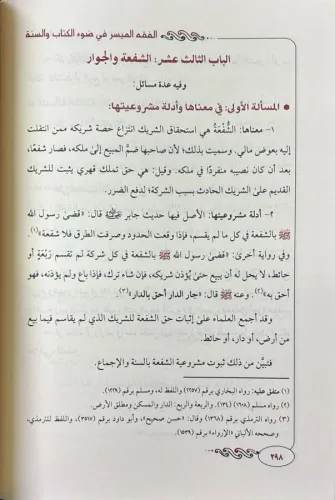 الفقه الميسر في ضوء الكتاب والسنة
الباب الثالث عشر: الشفعة والجوار
وفيه عدة مسائل:
● المسألة الأولى: في معناها وأدلة مشروعيتها:
١- معناها: الشُّفْعَةُ هي استحقاق الشريك انتزاعَ حصة شريكه ممن انتقلت
إليه بعوض مالي. وسميت بذلك؛ لأن صاحبها ضمَّ المبيع إلى ملكه، فصار شفعًا،
بعد أن كان نصيبه منفردًا في ملكه. وقيل: هي حق تملك قهري يثبت للشريك
القديم على الشريك الحادث بسبب الشركة؛ لدفع الضرر.
٢- أدلة مشروعيتها: الأصل فيها حديث جابر ﷺ قال: «قضى رسول الله
ﷺ بالشفعة في كل ما لم يقسم، فإذا وقعت الحدود وصرفت الطرق فلا شفعة»(١).
وفي رواية أخرى: «قضى رسول الله ﷺ بالشفعة في كل شركة لم تقسم رَبْعَةٍ أو
حائط، لا يحل له أن يبيع حتى يُؤذن شريكه، فإن شاء ترك، فإذا باع ولم يؤذنه، فهو
أحق به»(٢). وعنه ﷺ قال: «جار الدار أحق بالدار»(٣).
وقد أجمع العلماء على إثبات حق الشفعة للشريك الذي لم يقاسم فيما بيع
من أرض، أو دار، أو حائط.
فتبيَّن من ذلك ثبوت مشروعية الشفعة بالسنة والإجماع.
(١) متفق عليه: رواه البخاري برقم (٢٢٥٧) واللفظ له، ومسلم برقم (١٢٢٩).
(٢) رواه مسلم (١٦٠٨) (١٣٤). والربعة والربع: الدار والمسكن ومطلق الأرض.
(٣) رواه الترمذي برقم (١٣٦٨) وقال: «حسن صحيح»، وأبو داود برقم (٣٥١٧)، واللفظ للترمذي،
وصححه الألباني «الإرواء» برقم (١٥٣٩).
٢٩٨